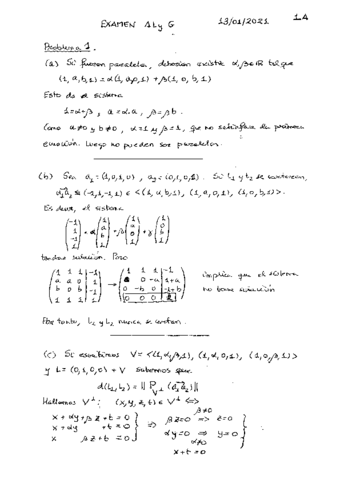 EXAMEN ALy G 13/01/2021 1A
Problema 1.
(a) Si fueran paralelas, deberían existir α, β ∈ ℝ tal que
(1, a, b, 1) = α(1, a, 0, 1) + β(1, 0, b, 1)
Esto da el sistema
1 = α + β, a = α·a, β = β b.
Como a≠0 y b≠0, α = 1 y β = 1, que no satisface la primera
ecuación. Luego no pueden ser paralelas.
(b) Sea a₁ = (1, 0, 1, 0), a₂ = (0, 1, 0, 1). Si L₁ y L₂ se cortaran,
a₁a₂ = (-1, 1, -1, 1) ∈ <(1, a, b, 1), (1, a, 0, 1), (1, 0, b, 1)>.
Es decir, el sistema
(-1 1 -1 1) = α (1 a b 1) + β (1 a 0 1) + γ (1 0 b 1)
tendría solución. Pero
(1 1 1 | -1 (1 1 1 | -1
a a 0 | 1 → 0 0 -a | 1+a implica que el sistema
b 0 b | -1 0 -b 0 | -1+b no tiene solución
1 1 1 | 1) 0 0 0 | 2)
Por tanto, L₁ y L₂ nunca se cortan.
(c) Si escribimos V = <(1, α, β, 1), (1, α, 0, 1), (1, 0, β, 1)>
y L = (0, 1, 0, 0) + V sabemos que
d(L₁, L₂) = ‖ P_V⊥ (a₁a₂) ‖
Hallamos V⊥: (x, y, z, t) ∈ V⊥ ⟺
x + αy + βz + t = 0 β≠0
x + αy + t = 0 ⟹ βz = 0 ⟹ z = 0
x βz + t = 0 αy = 0 ⟹ y = 0
α≠0
x + t = 0